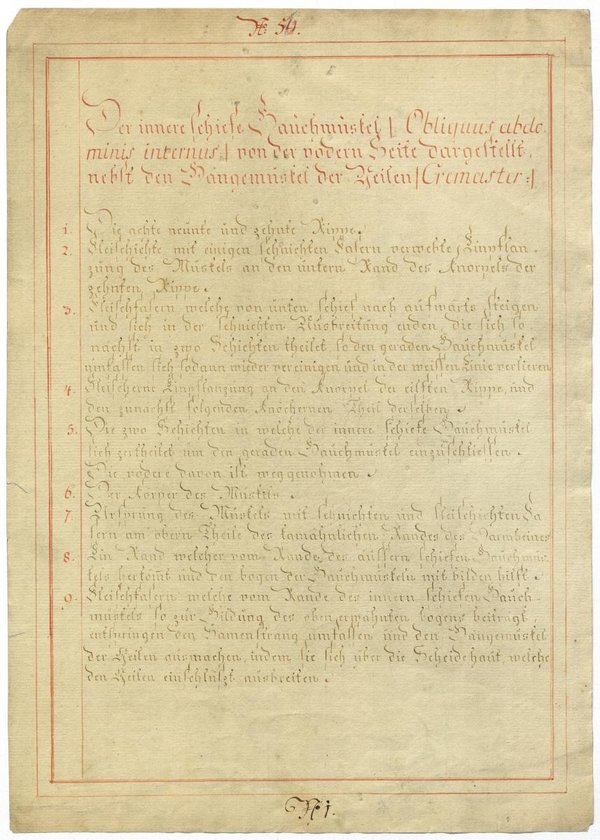 N: 54.
Der innere schiefe Bauchmuskel /: Obliquus abdo-
minis internus :/ von der vödern Seite dargestellt,
nebst den Hängemuskel der Heilen /: Cremaster :/
1. Die achte neunte und zehnte Rippe.
2. Fleischichte mit einigen sehnichten Fasern verwebte Einpflan-
zung des Muskels an den untern Rand des Knorpels der
zehnten Rippe.
3. Fleischfasern welche von unten schief nach aufwärts steigen
und sich in der sehnichten Ausbreitung enden, die sich so
nachst in zwo Schichten theilet so den geraden Bauchmuskel
umfassen sich sodann wieder vereinigen und in der weissen Linie verlieren
4. Fleischerne Einpflanzung an den Knorpel der eilften Rippe, und
den zunächst folgenden knöchernen Theil derselben.
5. Die zwo Schichten in welche der innere schiefe Bauchmuskel
sich zertheilet um den geraden Bauchmuskel einzuschliessen.
Die vödere davon ist weggenohmen.
6. Der Körper des Muskels.
7. Ursprung des Muskels mit sehnichten und fleischichten Fa-
sern am obern Theile des kamähnlichen Randes des Darmbeines
8. Ein Rand welcher vom Rande des äussern schiefen Bauchmus-
kels herkömt und den bogen der Bauchmuskeln mit bilden hilft.
9. Fleischfasern welche vom Rande des innern schiefen Bauch-
muskels so zur Bildung des oben erwähnten bogens beitragt
entspringen den Samenstrang umfassen und den Hängemuskel
der Heilen ausmachen, indem sie sich über die Scheidehaut, welche
den Heilen einschlüszt ausbreiten.
N: 1.